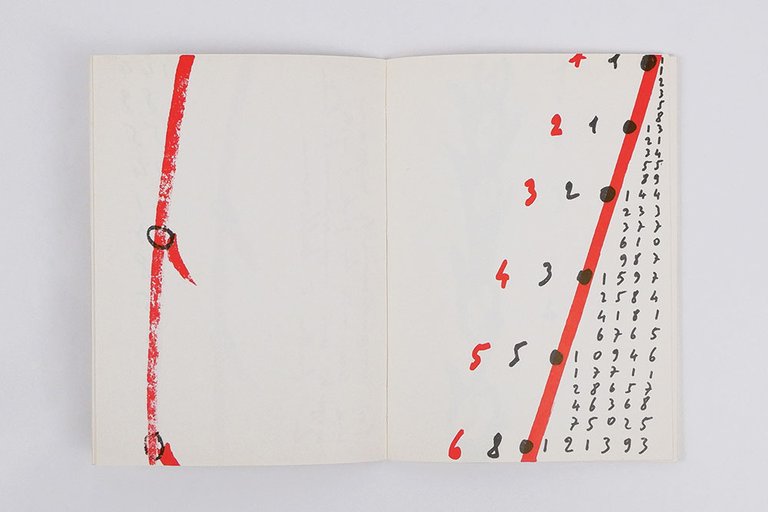 1 1 1
1
2
3
5
8
2 1 13
21
34
55
89
3 2 144
233
377
610
987
4 3 1597
2584
4181
6765
5 5 10946
17711
28657
46368
75025
6 8 121393